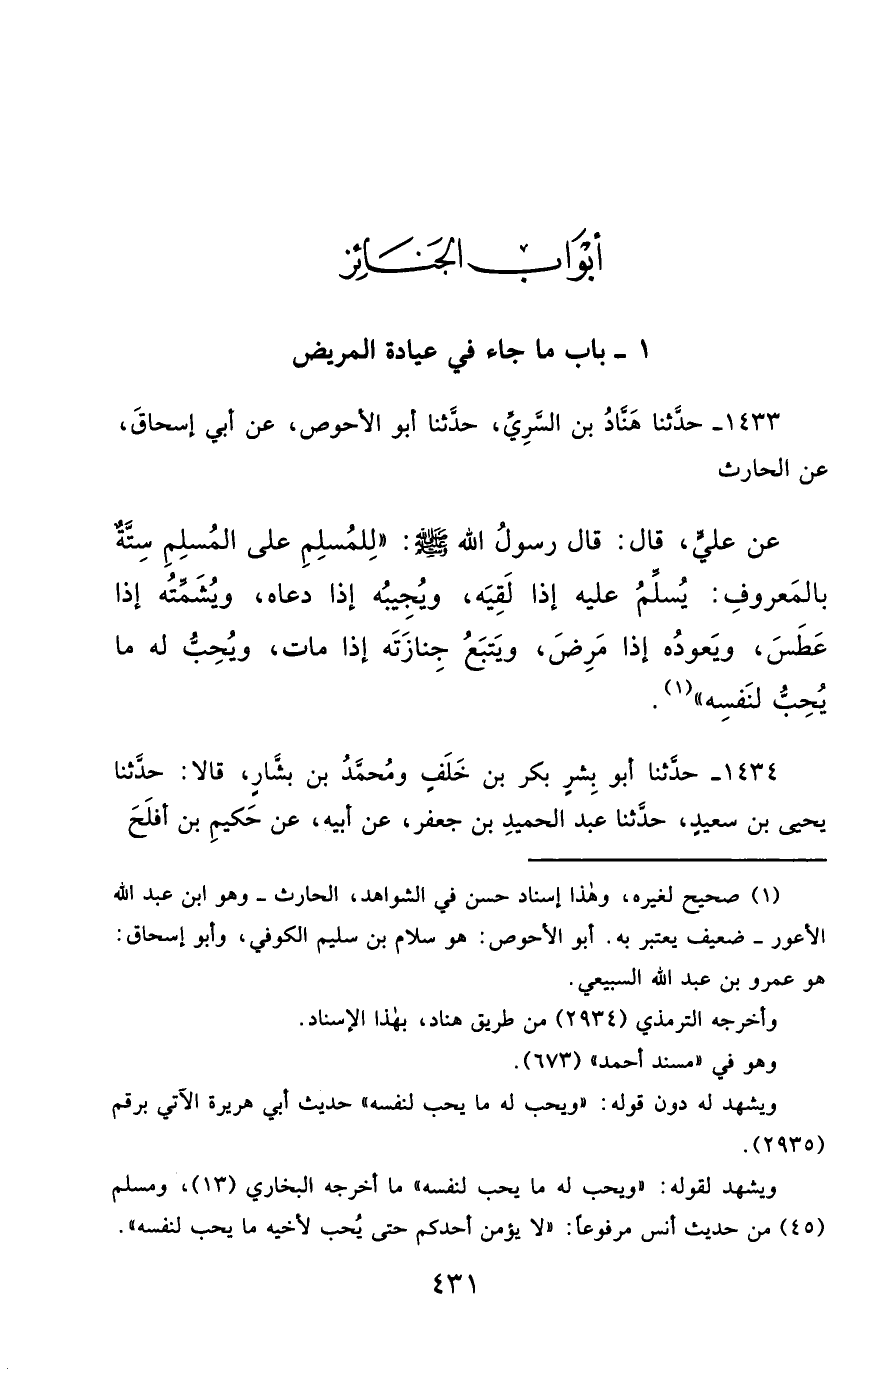 أبْوَابُ الجَنَائِز
١ ـ باب ما جاء في عيادة المريض
١٤٣٣ـ حدَّثنا هَنَّادُ بن السَّرِيِّ، حدَّثنا أبو الأحوص، عن أبي إسحاقَ،
عن الحارث
عن عليٍّ، قال: قال رسولُ الله ﷺ: «لِلمُسلِمِ على المُسلِمِ سِتَّةٌ
بالمَعروفِ: يُسلِّمُ عليه إذا لَقِيَه، ويُجِيبُه إذا دعاه، ويُشَمِّتُه إذا
عَطَسَ، ويَعودُه إذا مَرِضَ، ويَتبَعُ جِنازَتَه إذا مات، ويُحِبُّ له ما
يُحِبُّ لنَفسِه»(١).
١٤٣٤ـ حدَّثنا أبو بِشرٍ بكر بن خَلَفٍ ومُحمَّدُ بن بشَّارٍ، قالا: حدَّثنا
يحيى بن سعيدٍ، حدَّثنا عبد الحميدِ بن جعفر، عن أبيه، عن حَكيمِ بن أفلَحَ
(١) صحيح لغيره، وهٰذا إسناد حسن في الشواهد، الحارث ـ وهو ابن عبد الله
الأعور ـ ضعيف يعتبر به. أبو الأحوص: هو سلام بن سليم الكوفي، وأبو إسحاق:
هو عمرو بن عبد الله السبيعي.
وأخرجه الترمذي (٢٩٣٤) من طريق هناد، بهٰذا الإسناد.
وهو في «مسند أحمد» (٦٧٣).
ويشهد له دون قوله: «ويحب له ما يحب لنفسه» حديث أبي هريرة الآتي برقم
(٢٩٣٥).
ويشهد لقوله: «ويحب له ما يحب لنفسه» ما أخرجه البخاري (١٣)، ومسلم
(٤٥) من حديث أنس مرفوعاً: «لا يؤمن أحدكم حتى يُحب لأخيه ما يحب لنفسه».
٤٣١